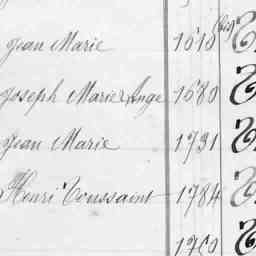 Jean Marie 1618 (bis)
Joseph Marie Ange 1680
Jean Marie 1731
Henri Toussaint 1784
1760